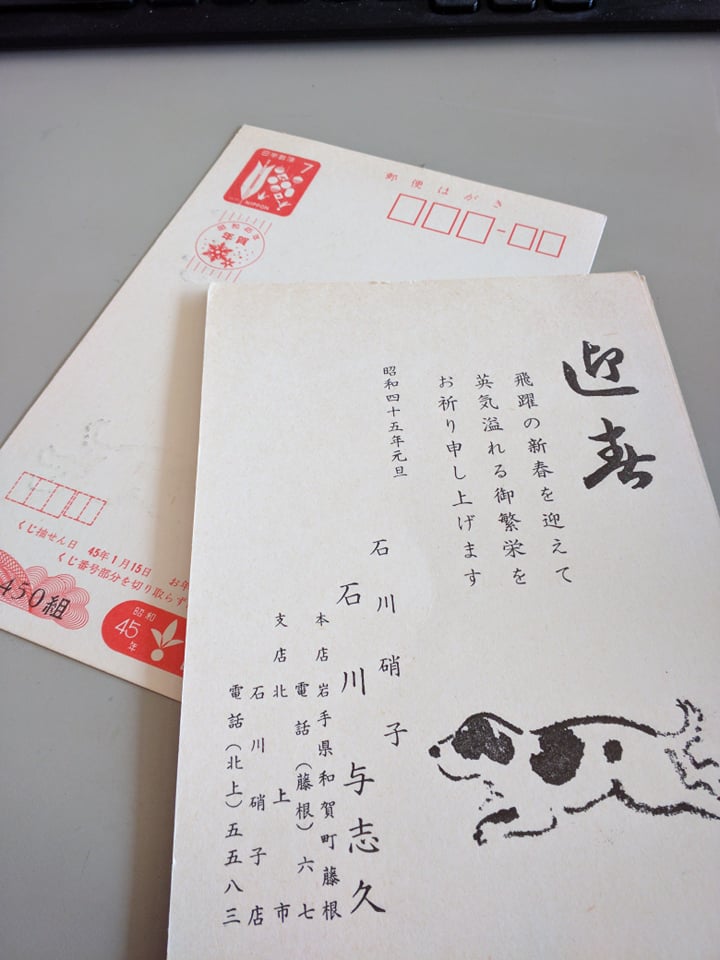 迎春
飛躍の新春を迎えて
英気溢れる御繁栄を
お祈り申し上げます
昭和四十五年元旦
石川硝子
石川与志久
本店 岩手県和賀町藤根
電話(藤根)六七
支店 北上市
石川硝子店
電話(北上)五五八三
郵便はがき
7
NIPPON
くじ抽せん日 45年1月15日 お年
くじ番号部分を切り取らず
450組
昭和
45
年